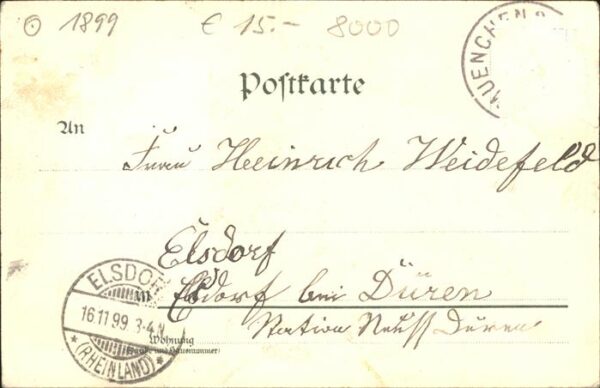 1899 € 15.- 8000
MUENCHEN 2
Postkarte
An
Frau Heinrich Weidefeld
Elsdorf
in Elsdorf bei Düren
Station Neuss Düren
Wohnung
(Straße und Hausnummer)
ELSDORF
16.11.99. 3-4 N.
* (RHEINLAND) *